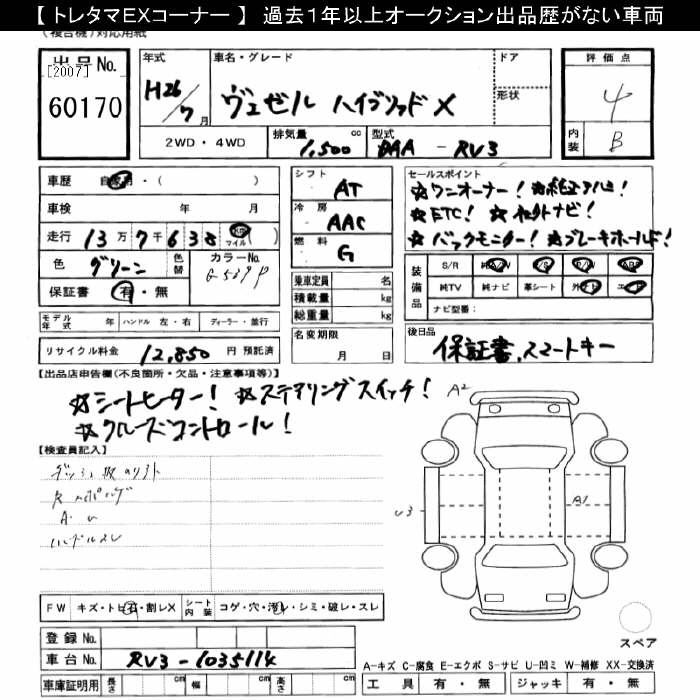 【 トレタマEXコーナー 】 過去１年以上オークション出品歴がない車両
(複合機) 対応用紙
出品No.
[2007]
60170
年式
H26/7月
車名・グレード
ヴェゼル ハイブリッド X
ドア
形状
評価点
4
内装
B
2WD・4WD
排気量
1,500
cc
型式
DAA - RV3
車歴
自家用・( )
車検
年 月
走行
13万7千638
マイル
色
グリーン
色替
カラーNo.
G-539P
保証書
有・無
モデル年式
年
ハンドル
左・右
ディーラー・並行
リサイクル料金
12,850
円 預託済
シフト
AT
冷房
AAC
燃料
G
乗車定員
名
積載量
kg
総重量
kg
名変期限
月 日
セールスポイント
☆ワンオーナー! ☆純正アルミ!
☆ETC! ☆社外ナビ!
☆バックモニター! ☆ブレーキホールド!
装備品
S/R 純A/W P/S P/W ABS
純TV 純ナビ 革シート 外ナビ エアB
ナビ型番:
後日品
保証書、スマートキー
【出品店申告欄(不良箇所・欠品・注意事項等)】
☆シートヒーター! ☆ステアリングスイッチ!
☆クルーズコントロール!
【検査員記入】
A2
A1
U3
ハンドルスレ
FW
キズ・トビ石・割レX
シート内装
コゲ・穴・汚レ・シミ・破レ・スレ
スペア
登録No.
車台No.
RV3-1035114
A-キズ C-腐食 E-エクボ S-サビ U-凹ミ W-補修 XX-交換済
車庫証明用
長さ
cm
幅
cm
高さ
cm
工具
有・無
ジャッキ
有・無